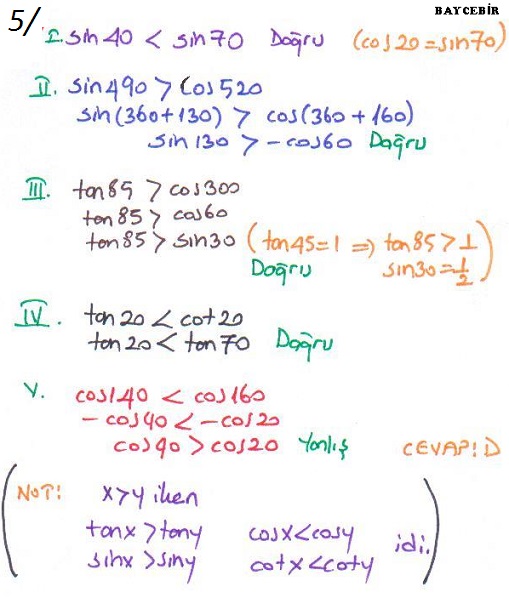 5/
BAYCEBİR
I. sin40 < sin70 Doğru (cos20=sin70)
II. sin490 > cos520
sin(360+130) > cos(360+160)
sin130 > -cos60 Doğru
III. tan85 > cos300
tan85 > cos60
tan85 > sin30 (tan45=1 ⇒ tan85>1
Doğru sin30=1/2)
IV. tan20 < cot20
tan20 < tan70 Doğru
V. cos140 < cos160
-cos40 < -cos20
cos40 > cos20 Yanlış CEVAP: D
(NOT: x>y iken
tanx > tany cosx<cosy
sinx > siny cotx<coty idi.)